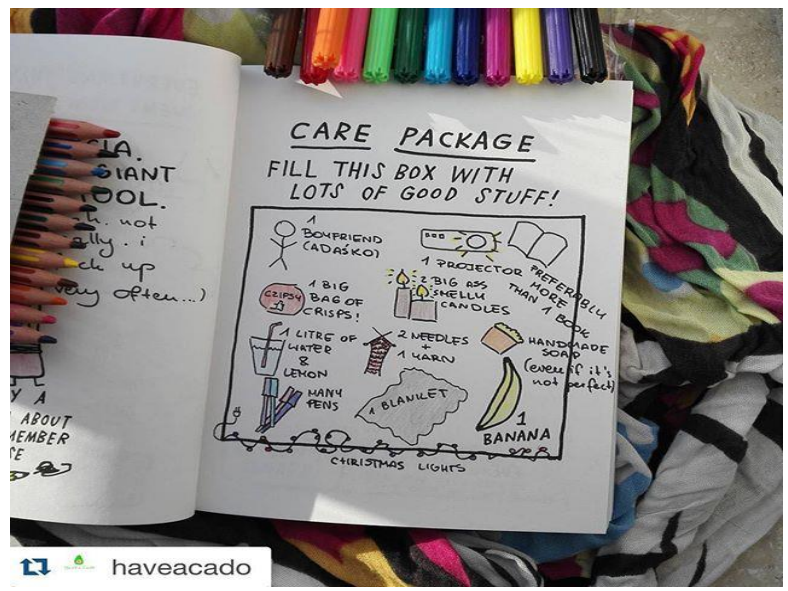 CIA.
GIANT
OOL.
not
ally. i
ck up
very often...)
Y A
ABOUT
MEMBER
SE
CARE PACKAGE
FILL THIS BOX WITH
LOTS OF GOOD STUFF!
1
BOYFRIEND
(ADAŚKO)
1 PROJECTOR
PREFERABLY
MORE
THAN 1 BOOK
CZIPSY
1 BIG
BAG OF
CRISPS!
2 BIG ASS
SMELLY
CANDLES
1 LITRE OF
WATER
&
LEMON
2 NEEDLES
+
1 YARN
HANDMADE
SOAP
(even if it's
not perfect)
MANY
PENS
1 BLANKET
1
BANANA
CHRISTMAS LIGHTS
haveacado